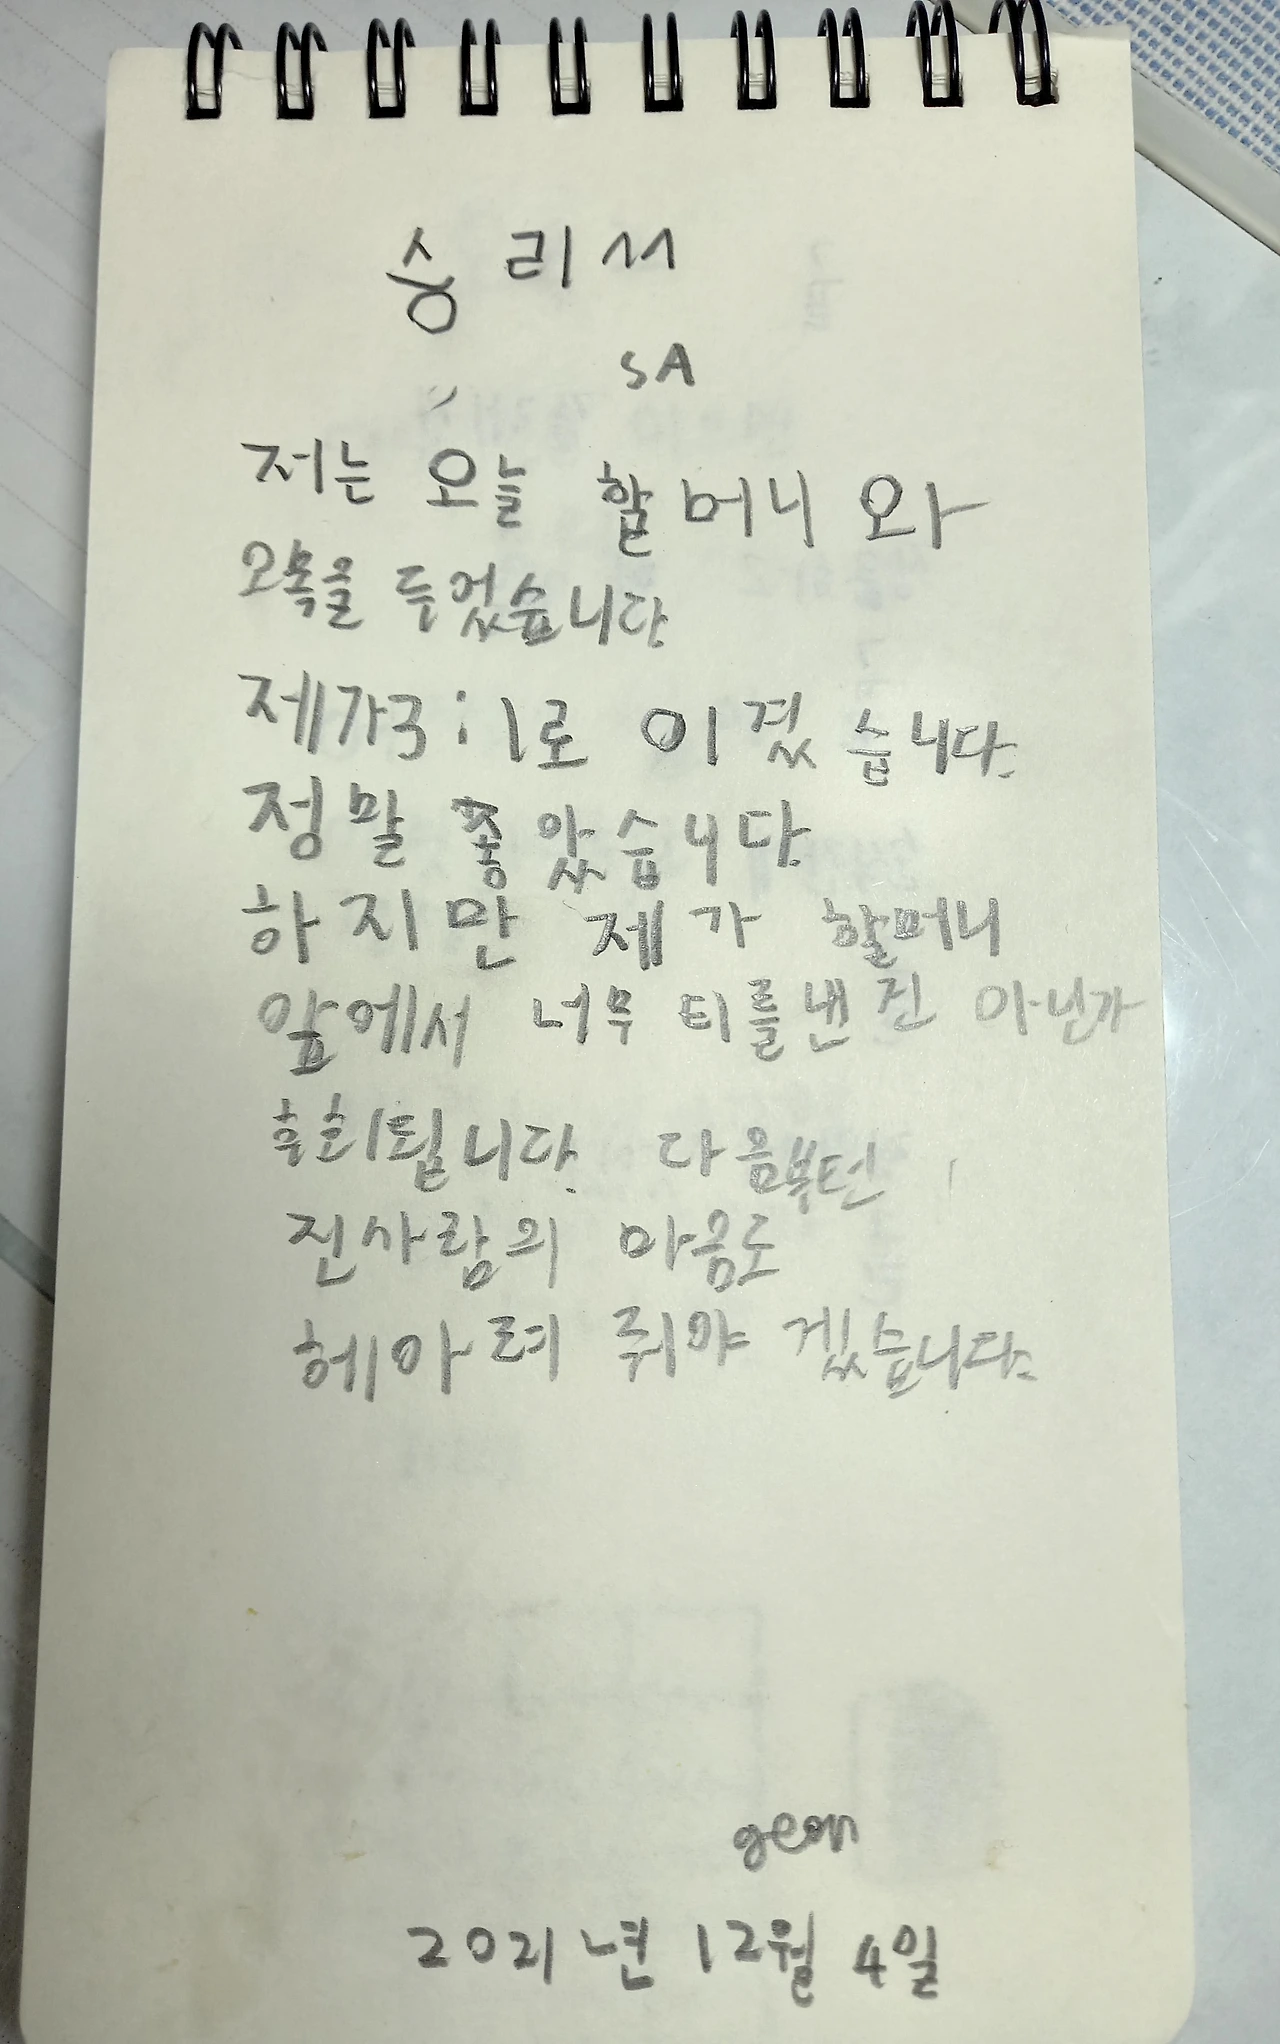 승리서
SA
저는 오늘 할머니 와
오목을 두었습니다
제가3:1로 이겼 습니다.
정말 좋았습니다
하지만 제가 할머니
앞에서 너무 티를낸건 아닌가
후회됩니다. 다음부턴
진사람의 마음도
헤아려 줘야 겠습니다.
geon
2021년 12월 4일